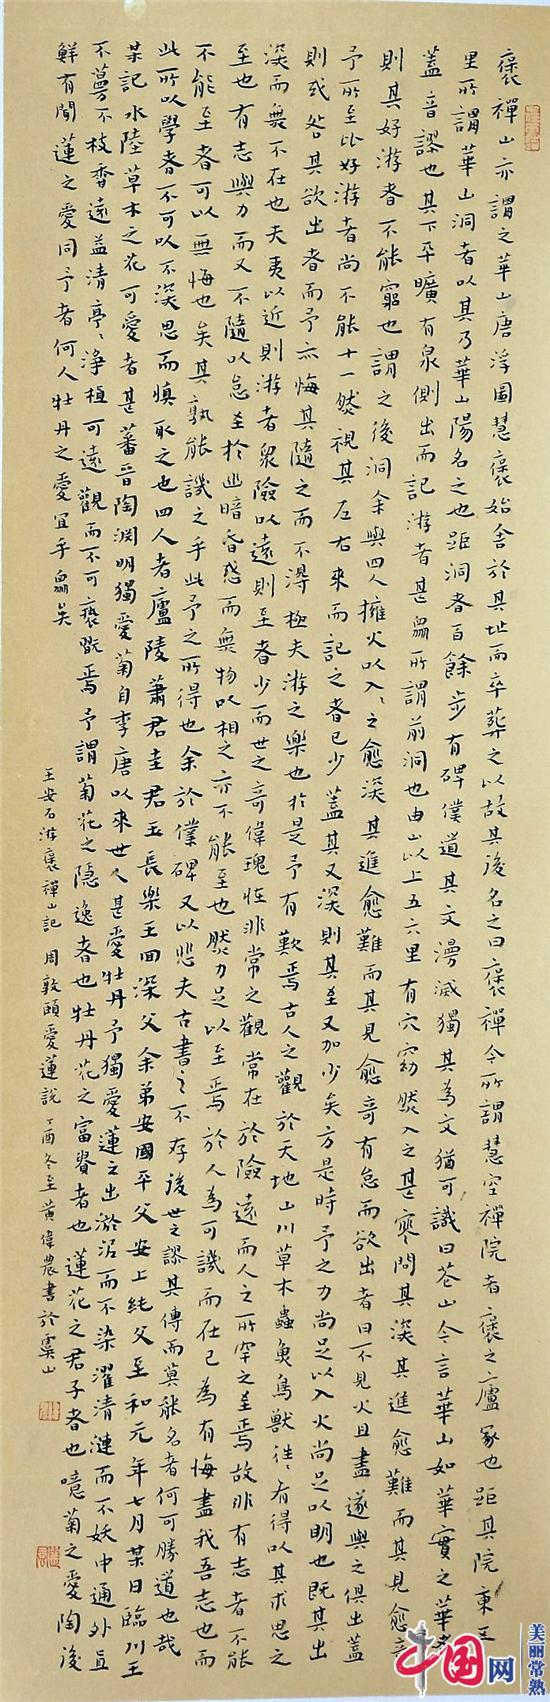 褒禪山亦謂之華山唐浮圖慧褒始舍於其址而卒葬之以故其後名之曰褒禪今所謂慧空禪院者褒之廬冢也距其院東五
里所謂華山洞者以其乃華山陽名之也距洞者百餘步有碑僕道其文漫滅獨其為文猶可識曰花山今言華山如華實之華者
蓋音謬也其下平曠有泉側出而記游者甚眾所謂前洞也由山以上五六里有穴窈然入之甚寒問其深其進愈難而其見愈奇
則其好游者不能窮也謂之後洞余與四人擁火以入、之愈深其進愈難而其見愈奇有怠而欲出者曰不見火且盡遂與之俱出蓋
予所至比好游者尚不能十一然視其左右來而記之者已少蓋其又深則其至又加少矣方是時予之力尚足以入火尚足以明也既其出
則或咎其欲出者而予亦悔其隨之而不得極夫游之樂也於是予有歎焉古人之觀於天地山川草木蟲魚鳥獸往、有得以其求思之
深而無不在也夫夷以近則游者眾險以遠則至者少而世之奇偉瑰怪非常之觀常在於險遠而人之所罕之至焉故非有志者不能
至也有志與力而又不隨以怠至於幽暗昏惑而無物以相之亦不能至也然力足以至焉於人為可譏而在己為有悔盡我吾志也而
不能至者可以無悔也矣其孰能譏之乎此予之所得也余於僕碑又以悲夫古書之不存後世之謬其傳而莫能名者何可勝道也哉
此所以學者不可以不深思而慎取之也四人者廬陵蕭君圭君玉長樂王回深父余弟安國平父安上純父至和元年七月某日臨川王
某記水陸草木之花可愛者甚蕃晉陶淵明獨愛菊自李唐以來世人甚愛牡丹予獨愛蓮之出淤泥而不染濯清漣而不妖中通外直
不蔓不枝香遠益清亭、淨植可遠觀而不可褻翫焉予謂菊花之隱逸者也牡丹花之富貴者也蓮花之君子者也噫菊之愛陶後
鮮有聞蓮之愛同予者何人牡丹之愛宜乎眾矣
王安石游褒禪山記 周敦頤愛蓮說 丁酉冬至黃偉農書於虞山
中国网
美丽常熟
JS.CHINA.COM.CN